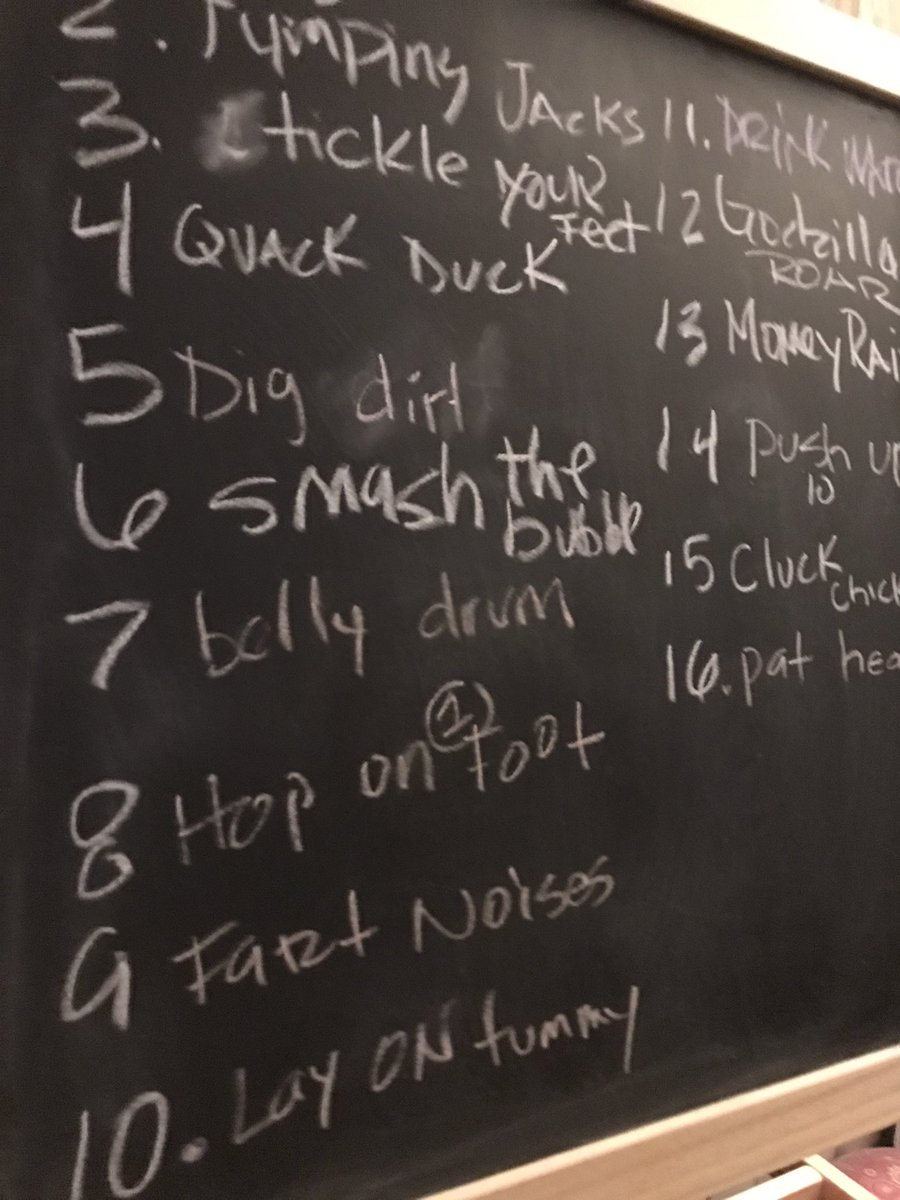 2. Jumping Jacks
3. tickle your feet
4 QUACK DUCK
5 Dig dirt
6 smash the bubble
7 belly drum
8 Hop on 1 foot
9 Fart Noises
10. Lay ON tummy
11. DRINK
12 Godzilla
ROAR
13 Money
14 push
10
15 Cluck
16. pat